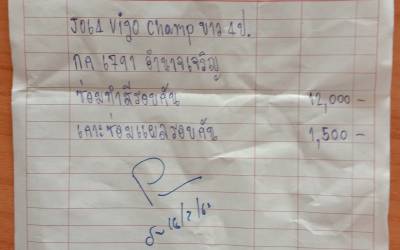 JOGL Vigo Champ ขาว 4ป.
กค 6791 อำนาจเจริญ
ซ่อมทำสีรอบคัน 12,000 -
เคาะซ่อมแผลรอบคัน 1,500 -